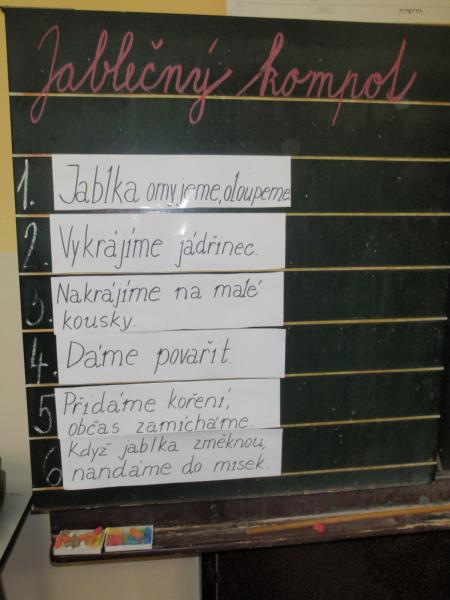 Jablečný kompot
1. Jablka omyjeme, oloupeme.
2. Vykrájíme jádřinec.
3. Nakrájíme na malé
kousky.
4. Dáme povařit.
5 Přidáme koření,
občas zamícháme.
6 Když jablka změknou,
nandáme do misek.